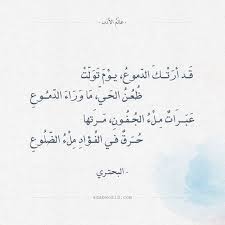 · عَالَمُ الأَدَب ·
قَد أرَتْكَ الدّموعُ، يوْمَ تَوَلّتْ
ظُعُنُ الحَيّ، مَا وَرَاءَ الدّمُوعِ
عَبَراتٌ مِلْءُ الجُفُونِ، مَرَتها
حُرَقٌ في الفُؤادِ مِلْءُ الضّلُوعِ
- البحتري -
· ADABWORLD.COM ·